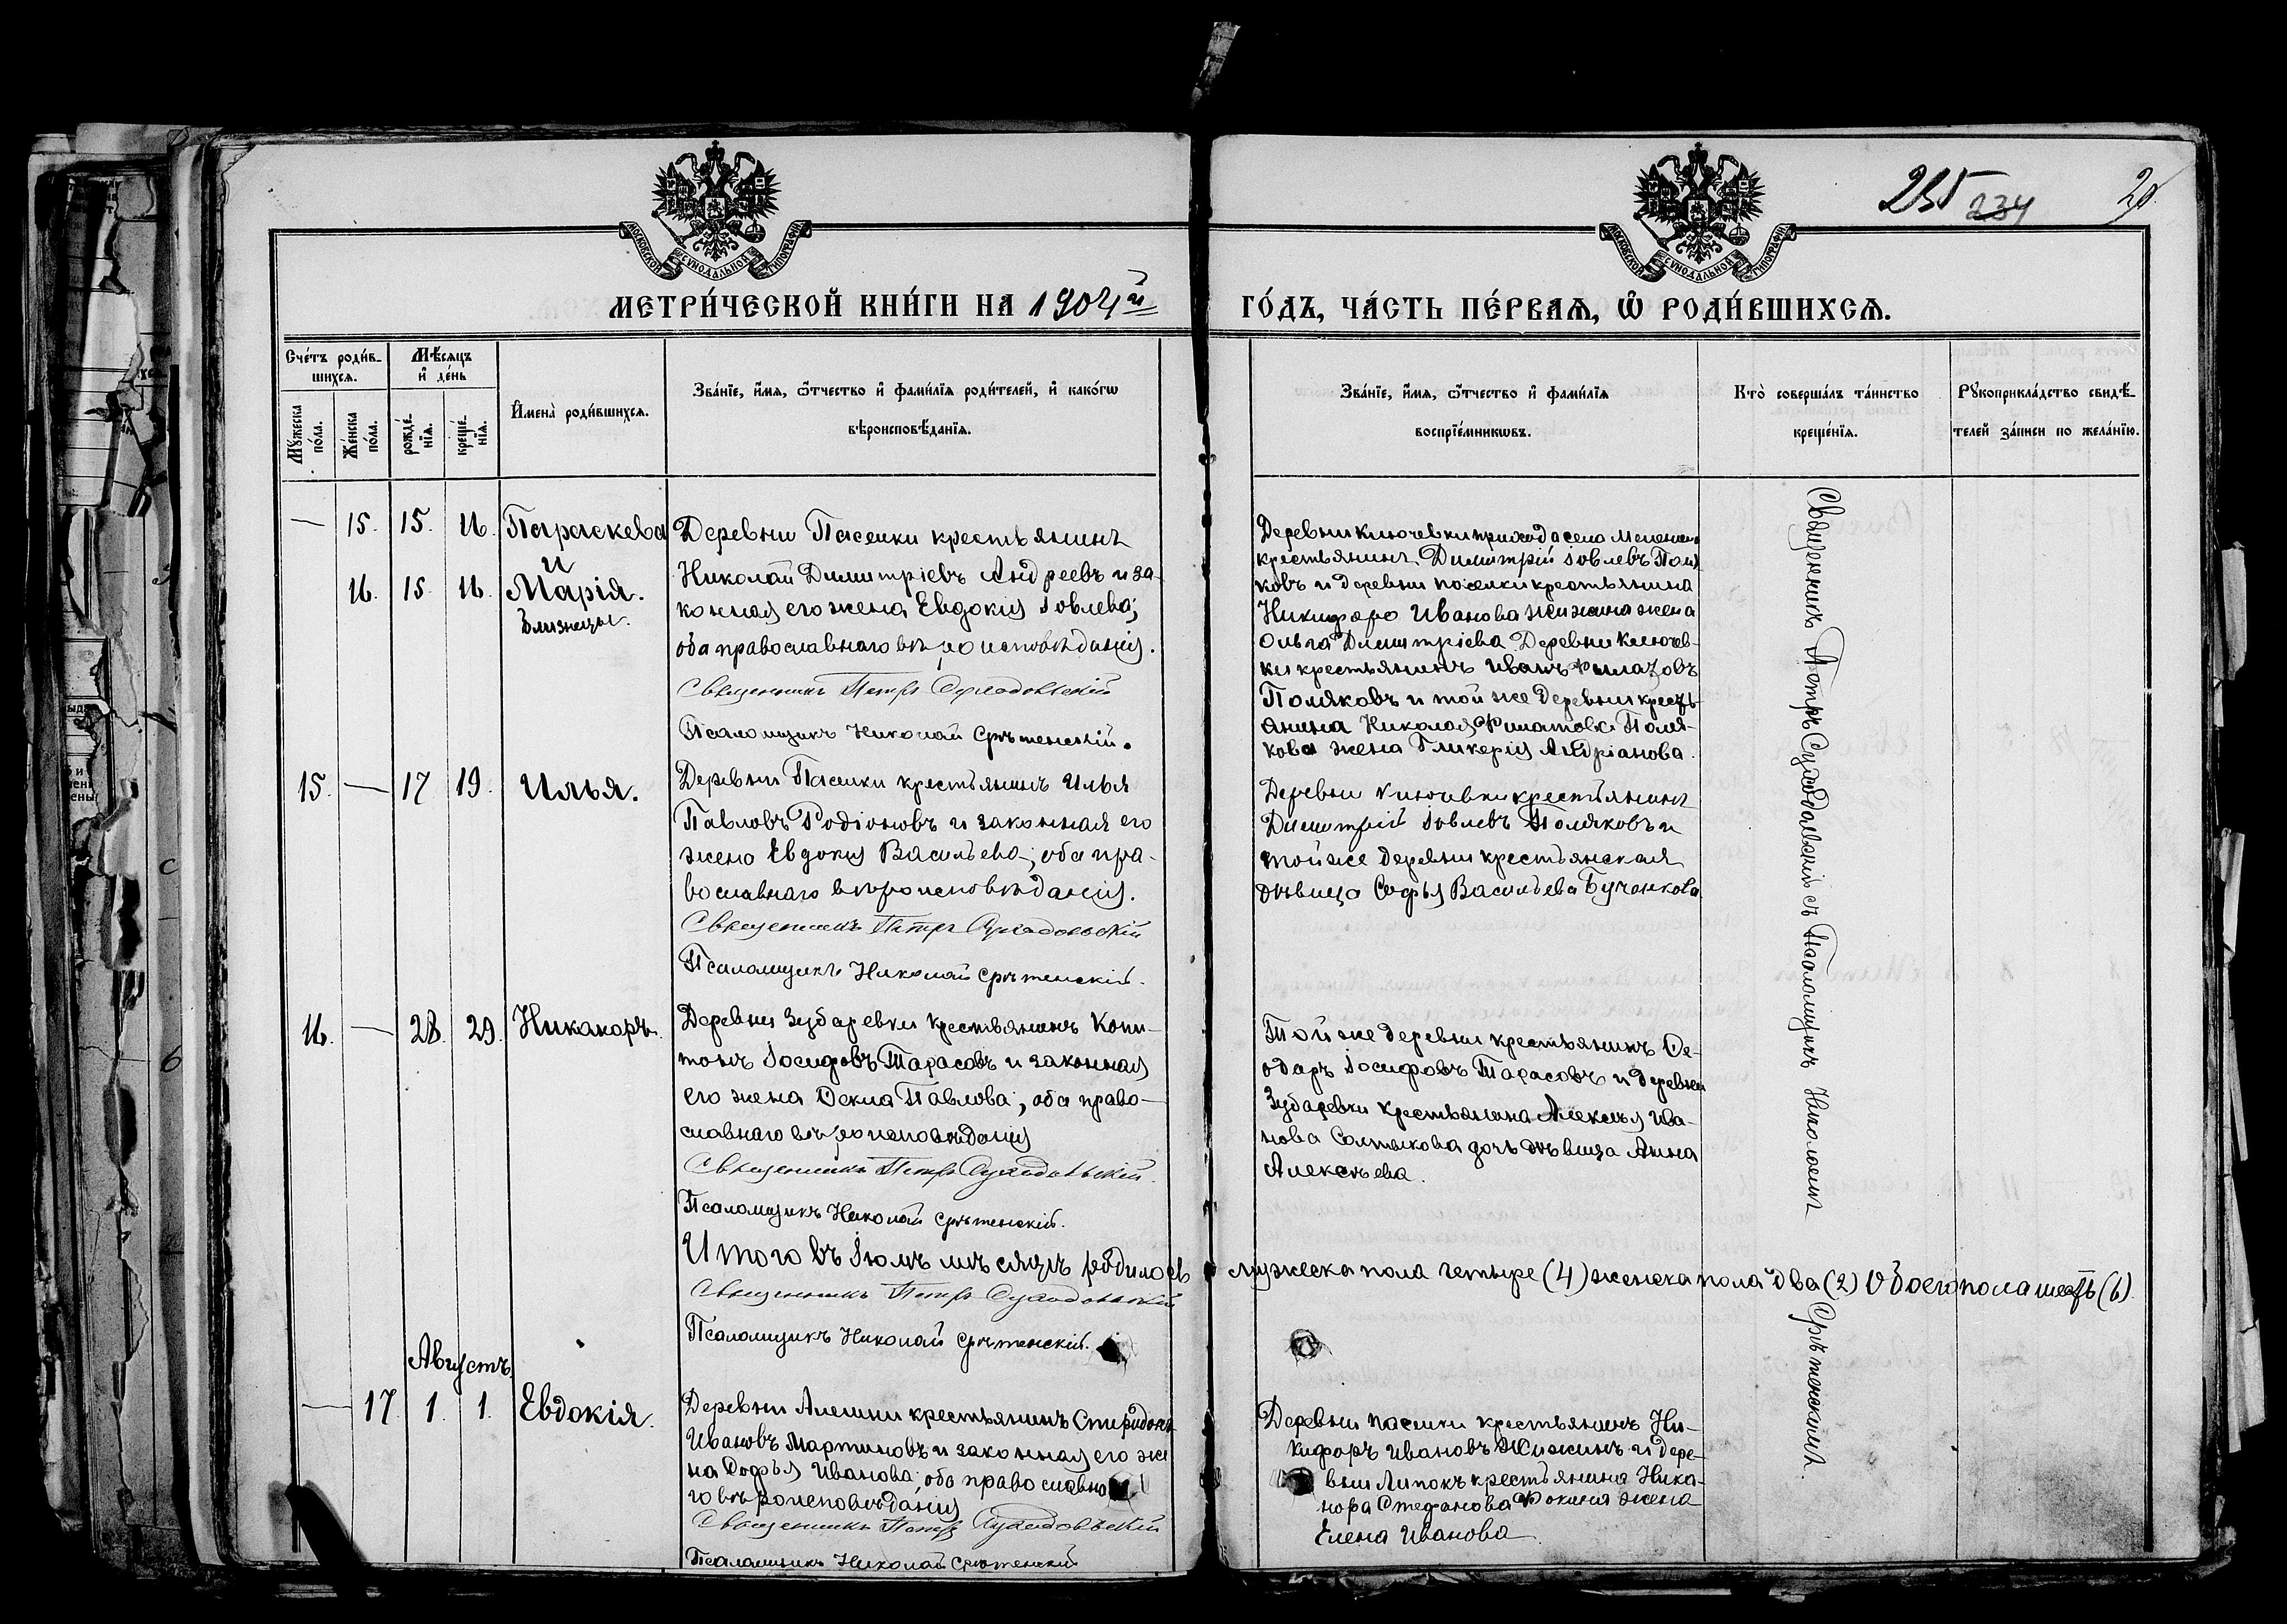 235 234 20
МОСКОВСКОЙ СѴНОДАЛЬНОЙ ТИПОГРАФІИ
МОСКОВСКОЙ СѴНОДАЛЬНОЙ ТИПОГРАФІИ
МЕТРИ́ЧЕСКОЙ КНИ́ГИ НА 1904й ГО́ДЪ, ЧА́СТЬ ПЕ́РВАѦ, Ѡ҆ РОДИ́ВШИХСѦ.
Сче́тъ роди́в-
шихсѧ.
Мꙋжеска
по́ла.
Же́нска
по́ла.
Мѣ́сѧцъ
и҆ де́нь
рожде́-
нїѧ.
креще́-
нїѧ.
И҆мена̀ роди́вшихсѧ.
Зва́нїе, и҆́мѧ, ѻ҆́тчество и҆ фами́лїѧ роди́телей, и҆ како́гѡ
вѣроисповѣ́данїѧ.
Зва́нїе, и҆́мѧ, ѻ҆́тчество и҆ фами́лїѧ
воспрїе́мникѡвъ.
Кто̀ соверша́лъ та́инство
креще́нїѧ.
Рꙋкоприкла́дство свидѣ́-
телей за́писи по жела́нїю.
— 15. 15. 16. Параскева
и
16. 15. 16. Марія.
Близнецы.
Деревни Пасеики крестьянинъ
Николай Димитріевъ Андреевъ и за-
конная его жена Евдокія Іовлева;
оба православнаго вѣроисповѣданія.
Священникъ Петръ Суходольскій
Псаломщикъ Николай Срѣтенскій.
Деревни Ключевки прихода села
крестьянинъ Димитрій Іовлевъ Поля
ковъ и деревни пасеики крестьянина
Никифора Иванова Жижина жена
Ольга Димитріева Деревни Ключев-
ки крестьянинъ Иванъ Филатовъ
Поляковъ и той же деревни кресть-
янина Николая Филатова Поля-
кова жена Гликерія Андріанова.
Священникъ Петръ Суходольскій съ Псаломщикомъ Николаемъ Срѣтенскимъ.
15. — 17 19. Илья.
Деревни Пасеики крестьянинъ Илья
Павловъ Родіоновъ и законная его
жена Евдокія Васильева; оба пра-
вославнаго вѣроисповѣданія.
Священникъ Петръ Суходольскій
Псаломщикъ Николай Срѣтенскій.
Деревни Ключевки крестьянинъ
Димитрій Іовлевъ Поляковъ и
той же деревни крестьянская
дѣвица Софья Васильева Бученкова.
16. — 28. 29. Никаноръ.
Деревни Зубаревки крестьянинъ Капи-
тонъ Іосифовъ Тарасовъ и законная
его жена Ѳекла Павлова; оба право-
славнаго вѣроисповѣданія
Священникъ Петръ Суходольскій.
Псаломщикъ Николай Срѣтенскій.
Той же деревни крестьянинъ Ѳе-
одоръ Іосифовъ Тарасовъ и деревни
Зубаревки крестьянина Алексѣя Ива-
нова Салтыкова дочь дѣвица Анна
Алексѣева.
Итого въ Іюлѣ мѣсяцѣ родилось мужеска пола четыре (4) женска пола два (2) Обоего пола шесть (6).
Священникъ Петръ Суходольскій
Псаломщикъ Николай Срѣтенскій.
Августъ
— 17. 1. 1. Евдокія.
Деревни Алешни крестьянинъ Спиридонъ
Ивановъ Мартиновъ и законная его же
на Софья Иванова; оба православна
го вѣроисповѣданія
Священникъ Петръ Суходольскій
Псаломщикъ Николай Срѣтенскій
Деревни Пасеики крестьянинъ Ни-
кифоръ Ивановъ Жижинъ и дере-
вни Липокъ крестьянина Ника-
нора Стефанова Фокина жена
Елена Иванова.